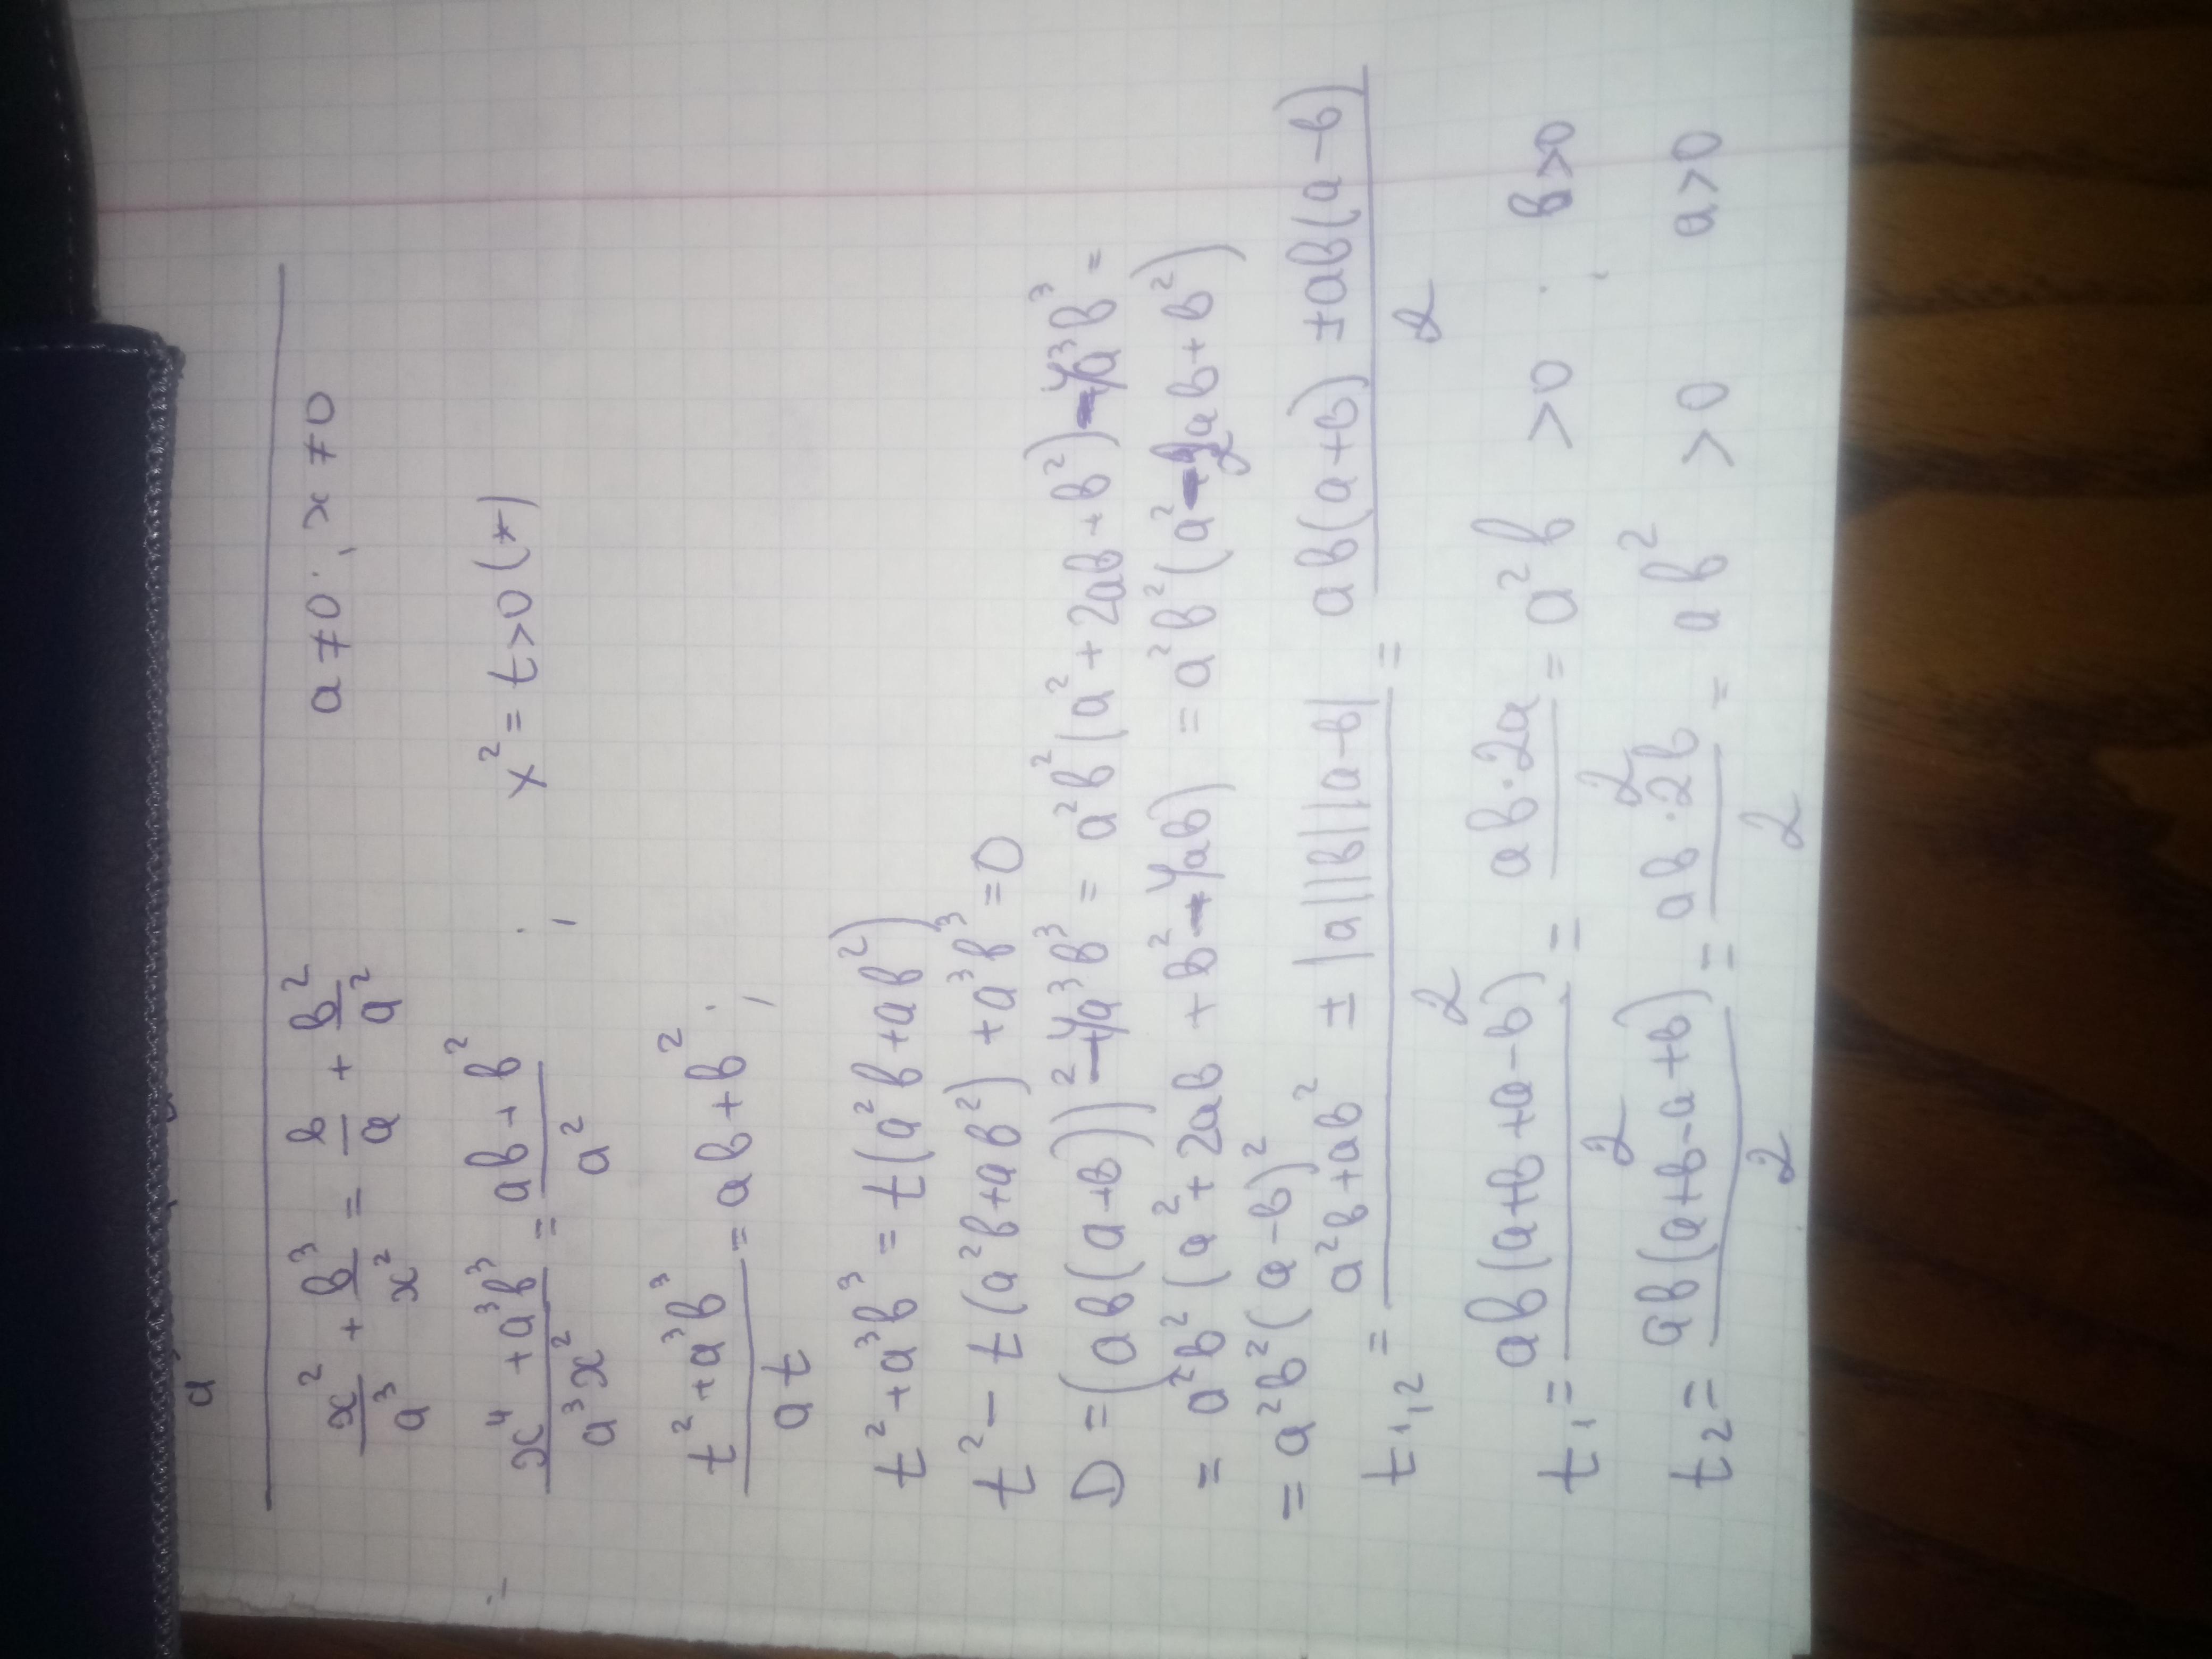 a
x²/a³ + b³/x² = b/a + b²/a²   a ≠ 0 ; x ≠ 0
(x⁴ + a³b³)/(a³x²) = (ab + b²)/a² ;   x² = t > 0 (*)
(t² + a³b³)/(at) = ab + b² ;
t² + a³b³ = t(a²b + ab²)
t² - t(a²b + ab²) + a³b³ = 0
D = (ab(a+b))² - 4a³b³ = a²b²(a² + 2ab + b²) - 4a³b³ =
= a²b²(a² + 2ab + b² - 4ab) = a²b²(a² - 2ab + b²)
= a²b²(a-b)²
t₁,₂ = (a²b + ab² ± |a||b||a-b|)/2 = (ab(a+b) ± ab(a-b))/2
t₁ = ab(a+b+a-b)/2 = ab·2a/2 = a²b > 0 ; b > 0
t₂ = ab(a+b-a+b)/2 = ab·2b/2 = ab² > 0   a > 0